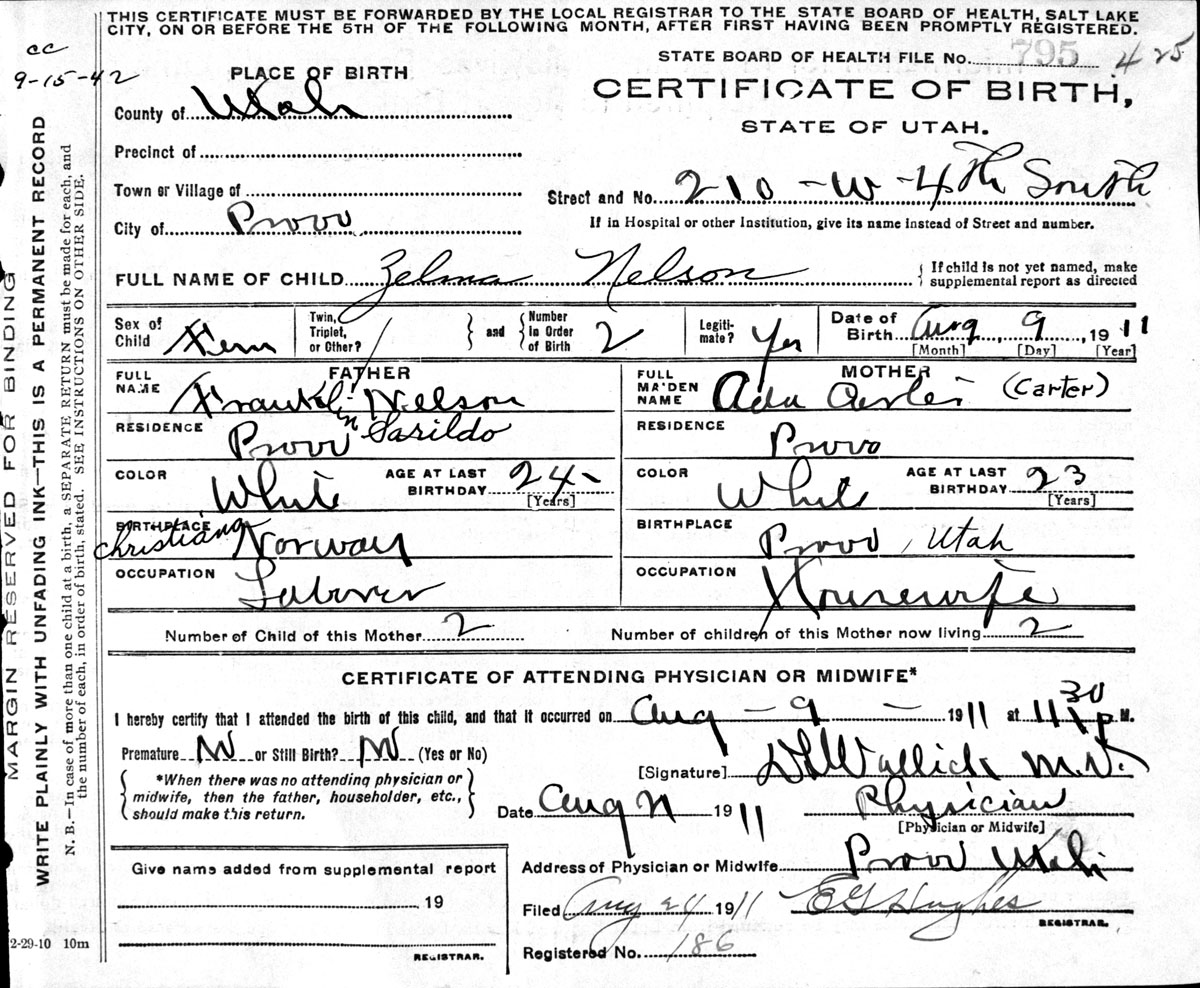 THIS CERTIFICATE MUST BE FORWARDED BY THE LOCAL REGISTRAR TO THE STATE BOARD OF HEALTH, SALT LAKE
CITY, ON OR BEFORE THE 5TH OF THE FOLLOWING MONTH, AFTER FIRST HAVING BEEN PROMPTLY REGISTERED.
cc
9-15-42
STATE BOARD OF HEALTH FILE No. 795 425
PLACE OF BIRTH
CERTIFICATE OF BIRTH,
STATE OF UTAH.
County of Utah
Precinct of
Town or Village of
Street and No. 210 - W - 4th South
City of Provo
If in Hospital or other Institution, give its name instead of Street and number.
FULL NAME OF CHILD Zelma Nelson
If child is not yet named, make supplemental report as directed
Sex of Child Fem
Twin, Triplet, or Other? / and Number in Order of Birth 2
Legitimate? Yes
Date of Birth Aug 9, 1911
[Month] [Day] [Year]
FATHER
FULL NAME Franklin Nelson
RESIDENCE Provo
COLOR White AGE AT LAST BIRTHDAY 24 -
[Years]
BIRTHPLACE Christiana Norway
OCCUPATION Laborer
MOTHER
FULL MAIDEN NAME Ada (Carter)
RESIDENCE Provo
COLOR White AGE AT LAST BIRTHDAY 23
[Years]
BIRTHPLACE Provo, Utah
OCCUPATION Housewife
Number of Child of this Mother 2 Number of children of this Mother now living 2
CERTIFICATE OF ATTENDING PHYSICIAN OR MIDWIFE*
I hereby certify that I attended the birth of this child, and that it occurred on Aug - 9 - 1911 at 11 30 P M.
Premature No or Still Birth? No (Yes or No)
*When there was no attending physician or
midwife, then the father, householder, etc.,
should make this return.
[Signature] Wallick M.D.
Date Aug 1911 Physician
[Physician or Midwife]
Address of Physician or Midwife Provo Utah
Give name added from supplemental report
19
REGISTRAR.
Filed Aug 24 1911 E G Hughes
REGISTRAR.
Registered No. 186
2-29-10 10m
MARGIN RESERVED FOR BINDING
WRITE PLAINLY WITH UNFADING INK—THIS IS A PERMANENT RECORD
N. B.—In case of more than one child at a birth, a SEPARATE RETURN must be made for each, and
the number of each, in order of birth, stated. SEE INSTRUCTIONS ON OTHER SIDE.